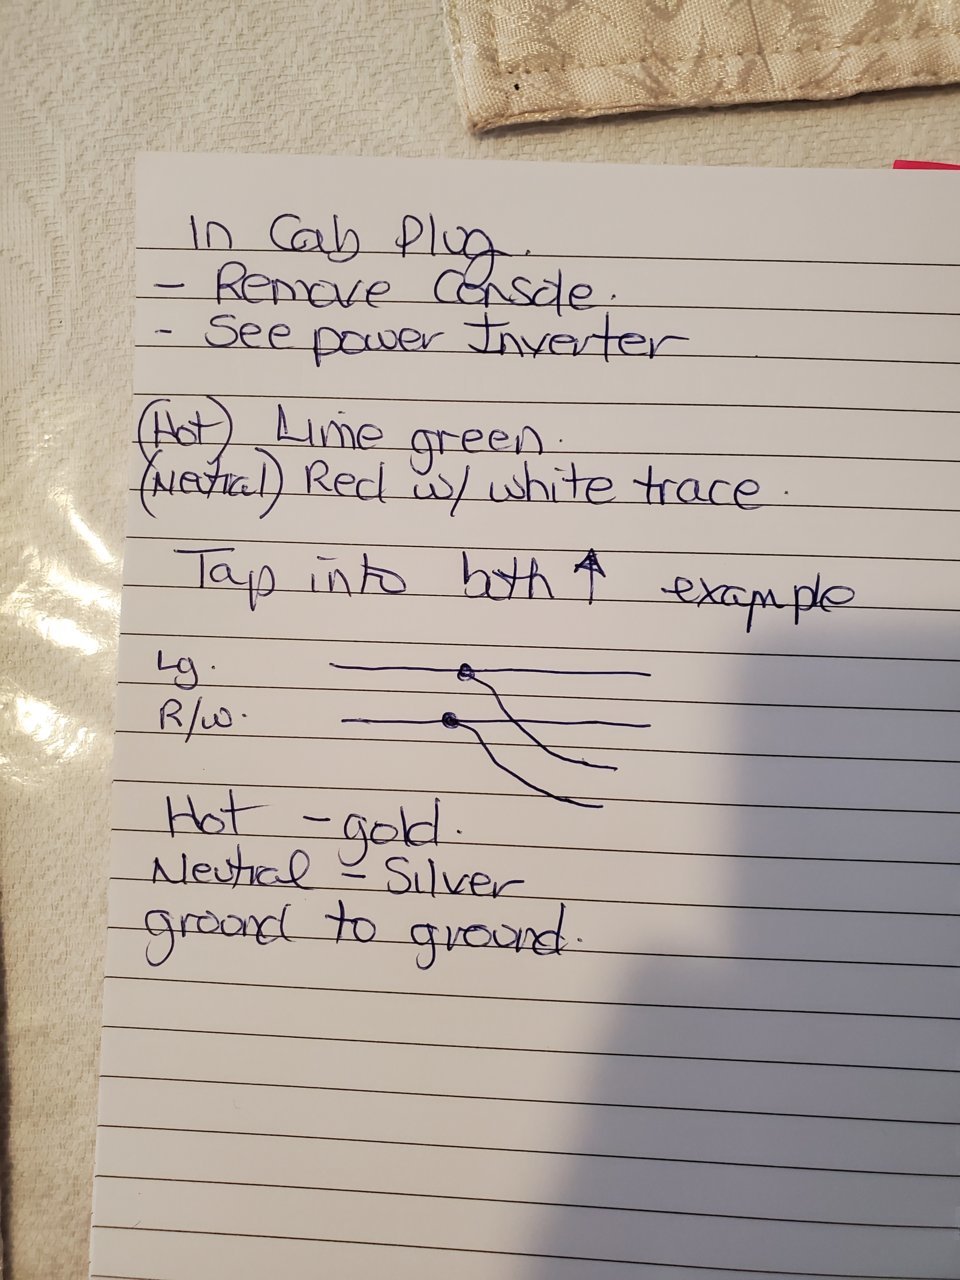 In Cab Plug.
- Remove Console.
- See power Inverter
(Hot) Lime green.
(Neutral) Red w/ white trace.
Tap into both ↑ example
Lg.
R/w.
Hot - gold.
Neutral - Silver
ground to ground.